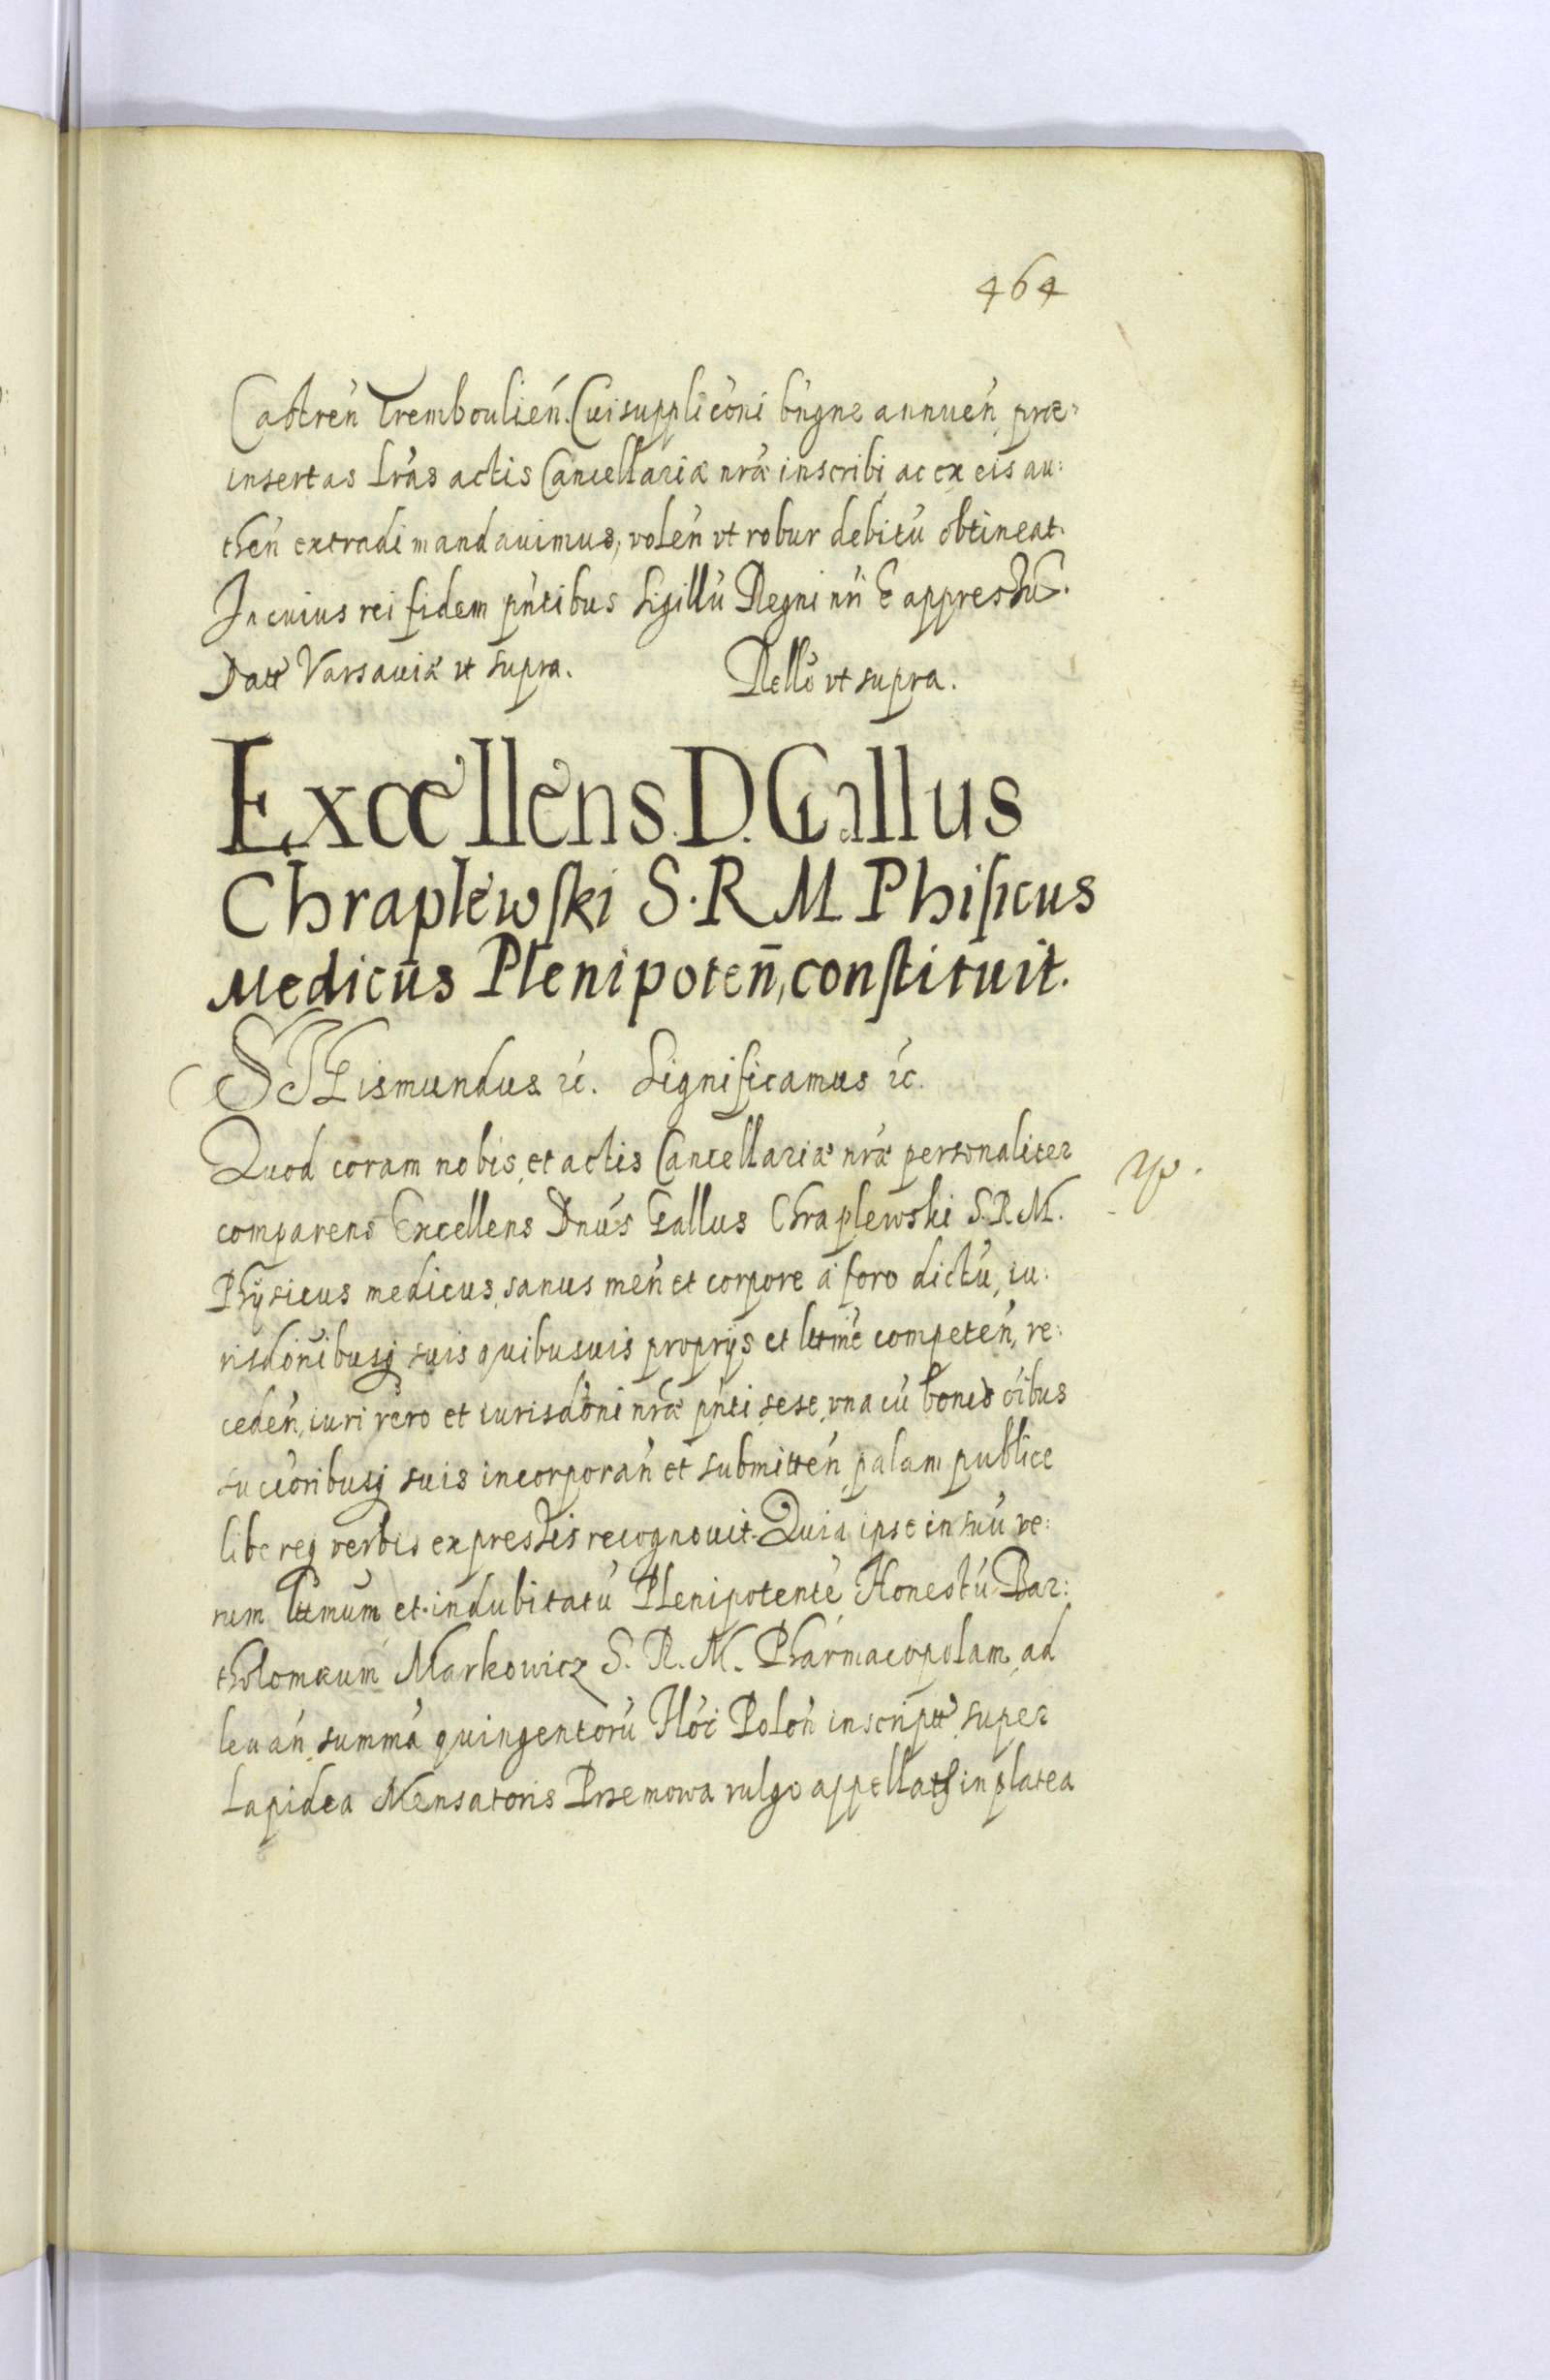 464
Castreń Trembouliéń. Cui suppliċoni bńgne annueń, præ-
insertas lrás actis Cancellariæ nrǽ inscribi, ac ex eis au:
theń extradi mandauimus, voleń vt robur debitú obtineat.
In cuius rei fidem pńtibus Sigillú Regni nrí ẽ appressú.
Datt Varsauiæ vt supra. Relló vt supra.
Excellens. D. Gallus
Chraplewſki S. R M Phiſicus
Medicus Plenipoteñ, conſtituit.
SIGismundus ꝛć. Significamus ꝛć.
Quod coram nobis, et actis Cancellariæ nrǽ personaliter
comparens Excellens Dnús Gallus Chraplewski S. R. M.
Phÿsicus medicus, sanus meń et corpore á foro dictú, iu:
risdońibusq suis quibusuis proprijs et lttmé competeń, re:
cedeń, iuri vero et iurisdóni nrǽ pńti sese, vna cú bonis óibus
succóribusq suis incorporań et submitteń, palam publice
libereq verbis expressis recognouit. Quia ipse in suú ve:
rum lttmum et indubitatú Plenipotenté Honestú Bar:
tholomæum Markowicz S. R. M. Pharmacopolam, ad
leuań summá quingentorú Flóŕ Poloń inscriptt super
Lapidea Mensatoris Przemowa vulgo appellatt in platea